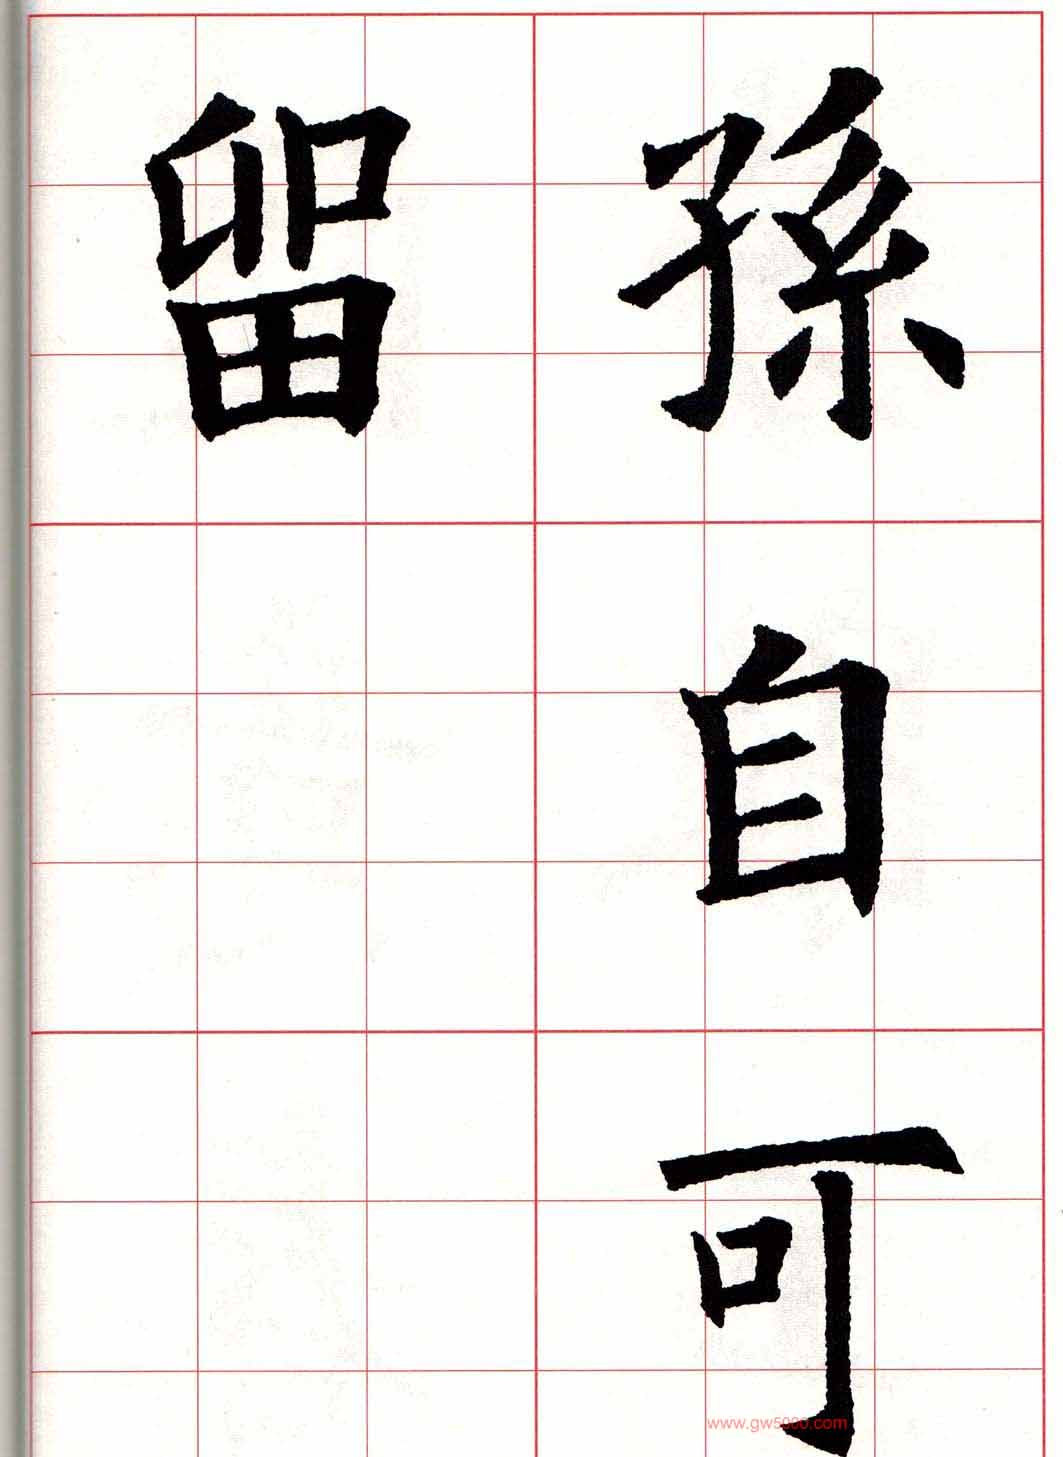 孫自可
留
www.gw5000.com